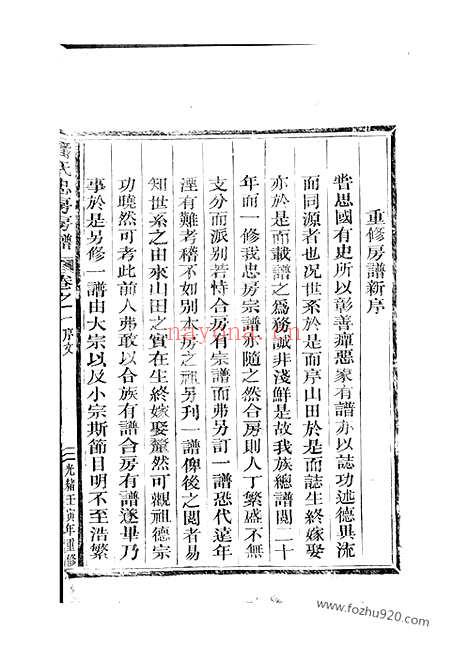 重修房譜新序
甞思國有史所以彰善癉惡家有譜亦以誌功述德異流
而同源者也况世系於是而序山田於是而誌生終嫁娶
亦於是而載譜之爲務誠非淺鮮是故我族總譜閱二十
年而一修我忠房宗譜亦隨之然合房則人丁繁盛不無
支分而派别若恃合房有宗譜而弗另訂一譜恐代遠年
湮有難考稽不如别本房之祖另刋一譜俾後之閱者易
知世系之由來山田之實在生終嫁娶釐然可觀祖德宗
功曉然可考此前人弗敢以合族有譜合房有譜遂畢乃
事於是另修一譜由大宗以及小宗斯節目明不至浩繁
氏忠房房譜
卷之一 序文
一 光緒壬寅年重修
nayona.cn
www.fozhu920.com